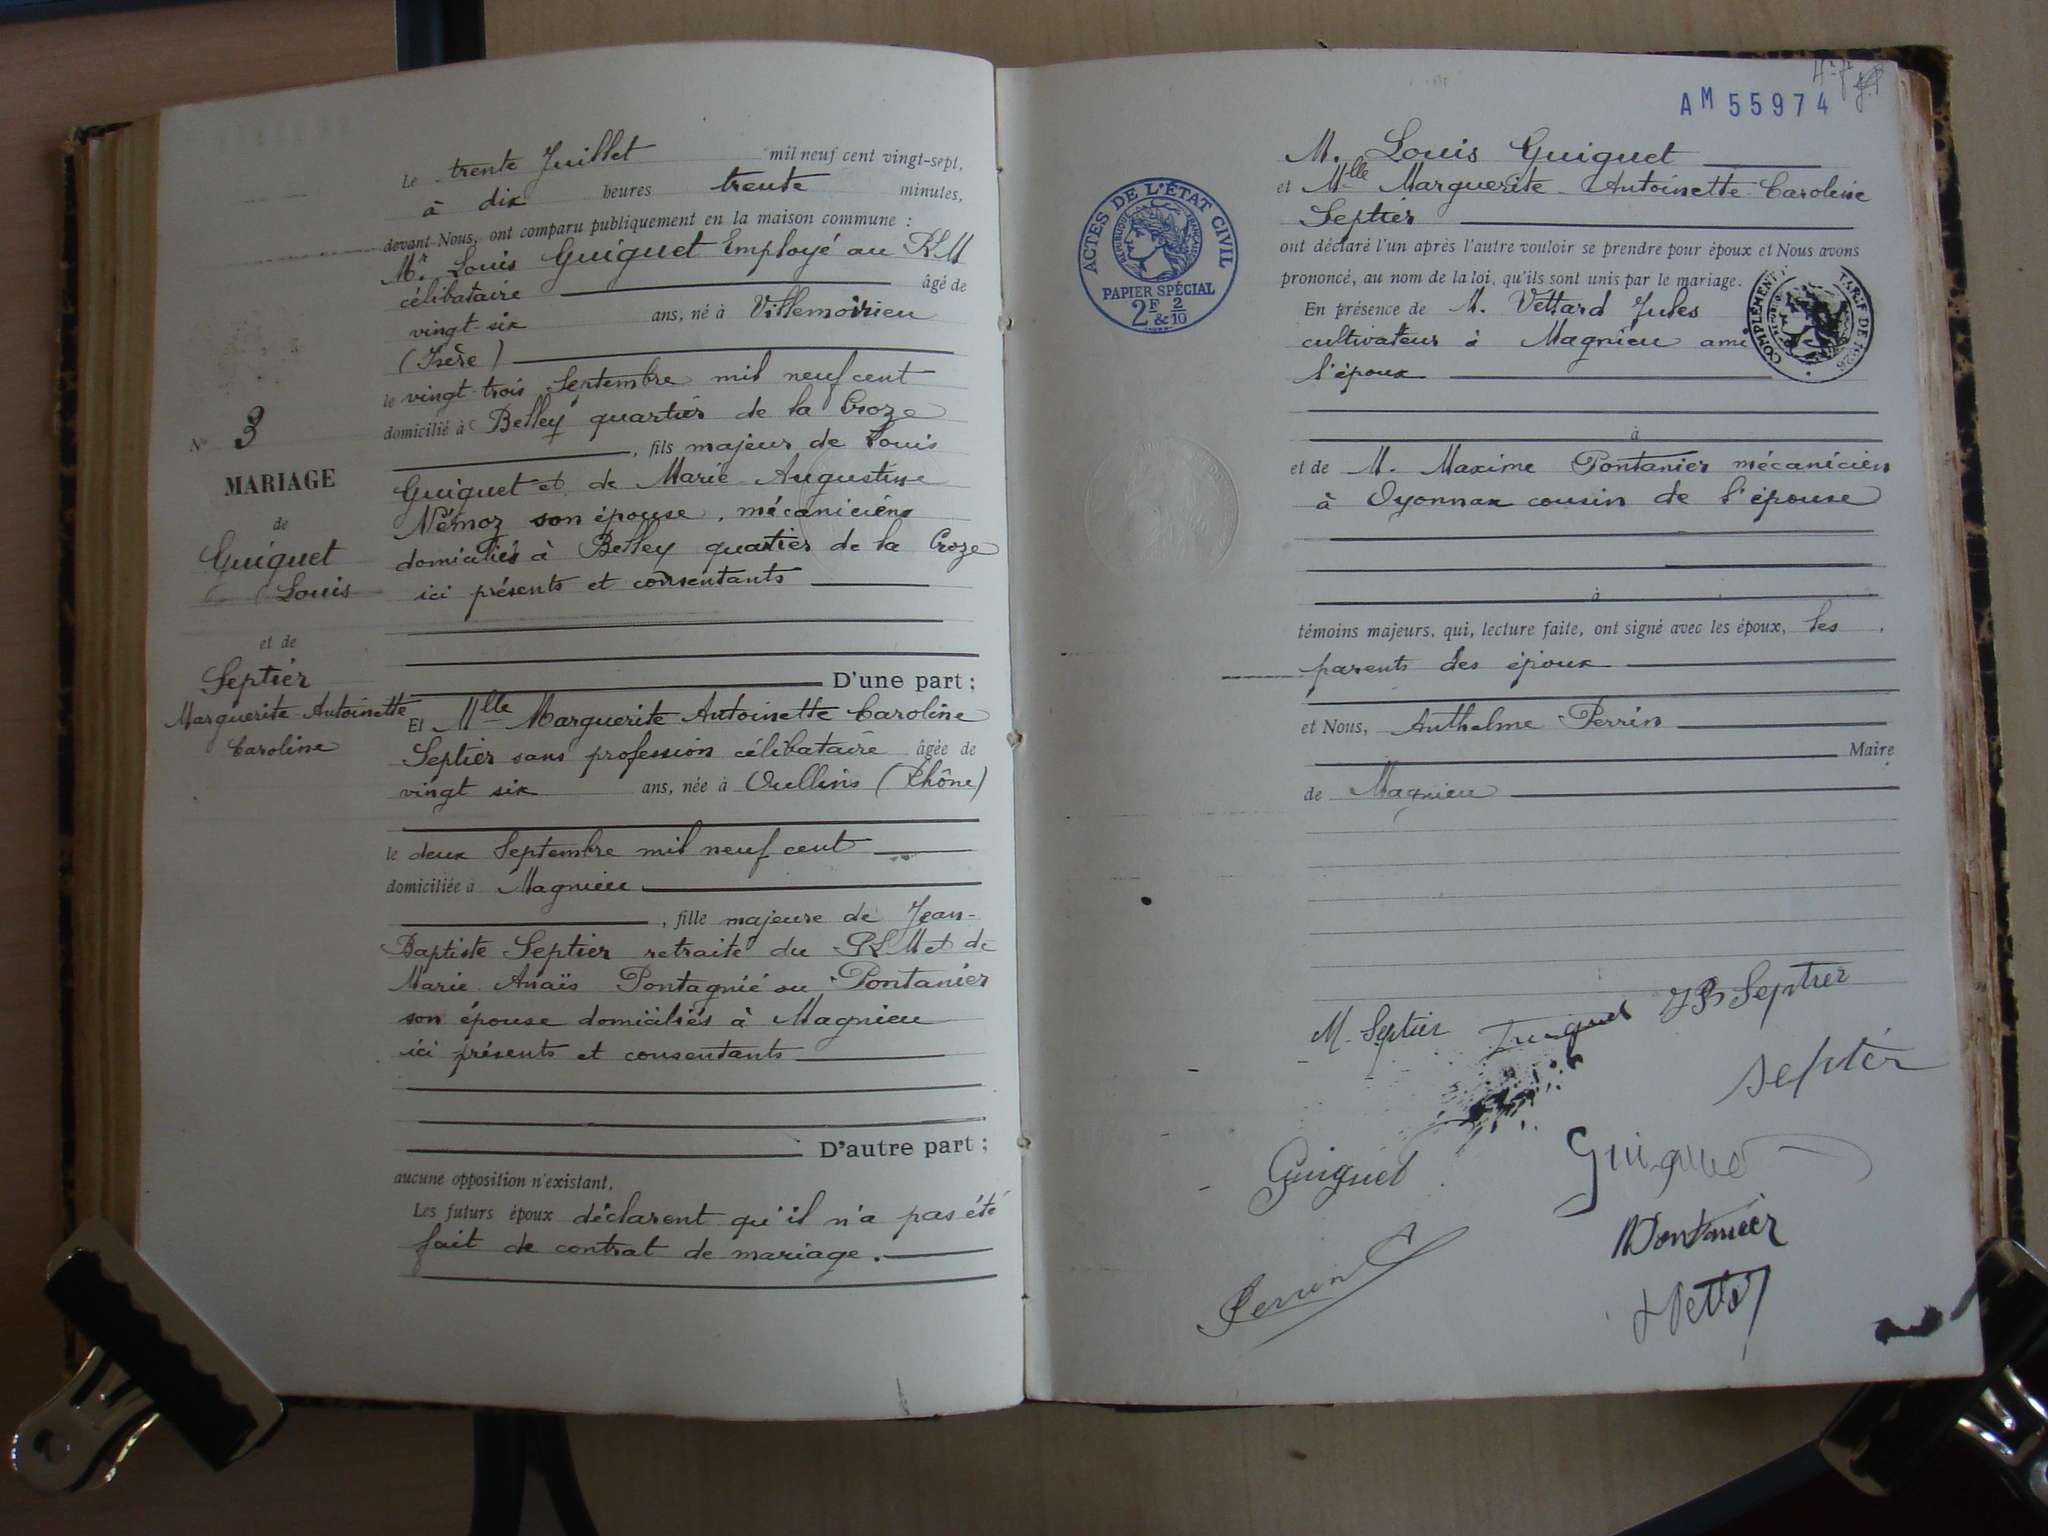 Le trente Juillet mil neuf cent vingt-sept,
à dix heures trente minutes,
devant Nous, ont comparu publiquement en la maison commune :
Mr. Louis Guiguet Employé au PLM
célibataire âgé de
vingt-six ans, né à Villemoirieu
(Isère)
le vingt-trois Septembre mil neuf cent
domicilié à Belley quartier de la Croze
, fils majeur de Louis
Guiguet et de Marie Augustine
Némoz son épouse, mécaniciens
domiciliés à Belley quartier de la Croze
ici présents et consentants
D'une part ;
Et Mlle Marguerite Antoinette Caroline
Septier sans profession célibataire âgée de
vingt six ans, née à Oullins (Rhône)
le deux Septembre mil neuf cent
domiciliée à Magnieu
, fille majeure de Jean-
Baptiste Septier retraité du PLM et de
Marie Anaïs Pontagnié ou Pontanier
son épouse domiciliés à Magnieu
ici présents et consentants
D'autre part ;
aucune opposition n'existant,
Les futurs époux déclarent qu'il n'a pas été
fait de contrat de mariage.
N° 3
MARIAGE
de
Guiguet
Louis
et de
Septier
Marguerite-Antoinette
Caroline
AM 55974
ACTES DE L'ÉTAT CIVIL
RÉPUBLIQUE FRANÇAISE
PAPIER SPÉCIAL
2F & 2/10
M. Louis Guiguet
et Mlle Marguerite-Antoinette-Caroline
Septier
ont déclaré l'un après l'autre vouloir se prendre pour époux et Nous avons
prononcé, au nom de la loi, qu'ils sont unis par le mariage.
COMPLÉMENT TARIF DE 1926
En présence de M. Vettard Jules
cultivateur à Magnieu ami
l'époux
à
et de M. Maxime Pontanier mécanicien
à Oyonnax cousin de l'épouse
à
témoins majeurs, qui, lecture faite, ont signé avec les époux, les
parents des époux
et Nous, Anthelme Perrin
Maire
de Magnieu
M. Septier Guiguet JB Septier
Septier
Guiguet Guiguet
MPontanier
Perrin